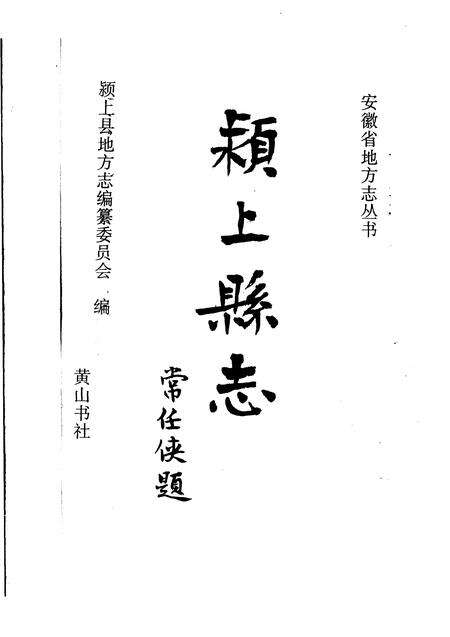 安徽省地方志丛书
颍上縣志
常任侠題
颍上县地方志编纂委员会 编
黄山书社